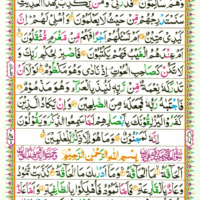 وَهُمْ سٰلِمُوْنَ فَذَرْنِيْ وَمَنْ يُّكَذِّبُ بِهٰذَا الْحَدِيْثِ
سَنَسْتَدْرِجُهُمْ مِّنْ حَيْثُ لَا يَعْلَمُوْنَ وَاُمْلِيْ لَهُمْ اِنَّ
كَيْدِيْ مَتِيْنٌ اَمْ تَسْـَٔلُهُمْ اَجْرًا فَهُمْ مِّنْ مَّغْرَمٍ مُّثْقَلُوْنَ
اَمْ عِنْدَهُمُ الْغَيْبُ فَهُمْ يَكْتُبُوْنَ فَاصْبِرْ لِحُكْمِ رَبِّكَ وَ
لَا تَكُنْ كَصَاحِبِ الْحُوْتِ اِذْ نَادٰى وَهُوَ مَكْظُوْمٌ لَوْلَا اَنْ
تَدٰرَكَهٗ نِعْمَةٌ مِّنْ رَّبِّهٖ لَنُبِذَ بِالْعَرَآءِ وَهُوَ مَذْمُوْمٌ
فَاجْتَبٰهُ رَبُّهٗ فَجَعَلَهٗ مِنَ الصّٰلِحِيْنَ وَاِنْ يَّكَادُ الَّذِيْنَ
كَفَرُوْا لَيُزْلِقُوْنَكَ بِاَبْصَارِهِمْ لَمَّا سَمِعُوا الذِّكْرَ وَيَقُوْلُوْنَ
اِنَّهٗ لَمَجْنُوْنٌ وَمَا هُوَ اِلَّا ذِكْرٌ لِّلْعٰلَمِيْنَ
بِسْمِ اللهِ الرَّحْمٰنِ الرَّحِيْمِ
اَلْحَآقَّةُ مَا الْحَآقَّةُ وَمَآ اَدْرٰىكَ مَا الْحَآقَّةُ كَذَّبَتْ ثَمُوْدُ
وَعَادٌ بِالْقَارِعَةِ فَاَمَّا ثَمُوْدُ فَاُهْلِكُوْا بِالطَّاغِيَةِ وَاَمَّا عَادٌ